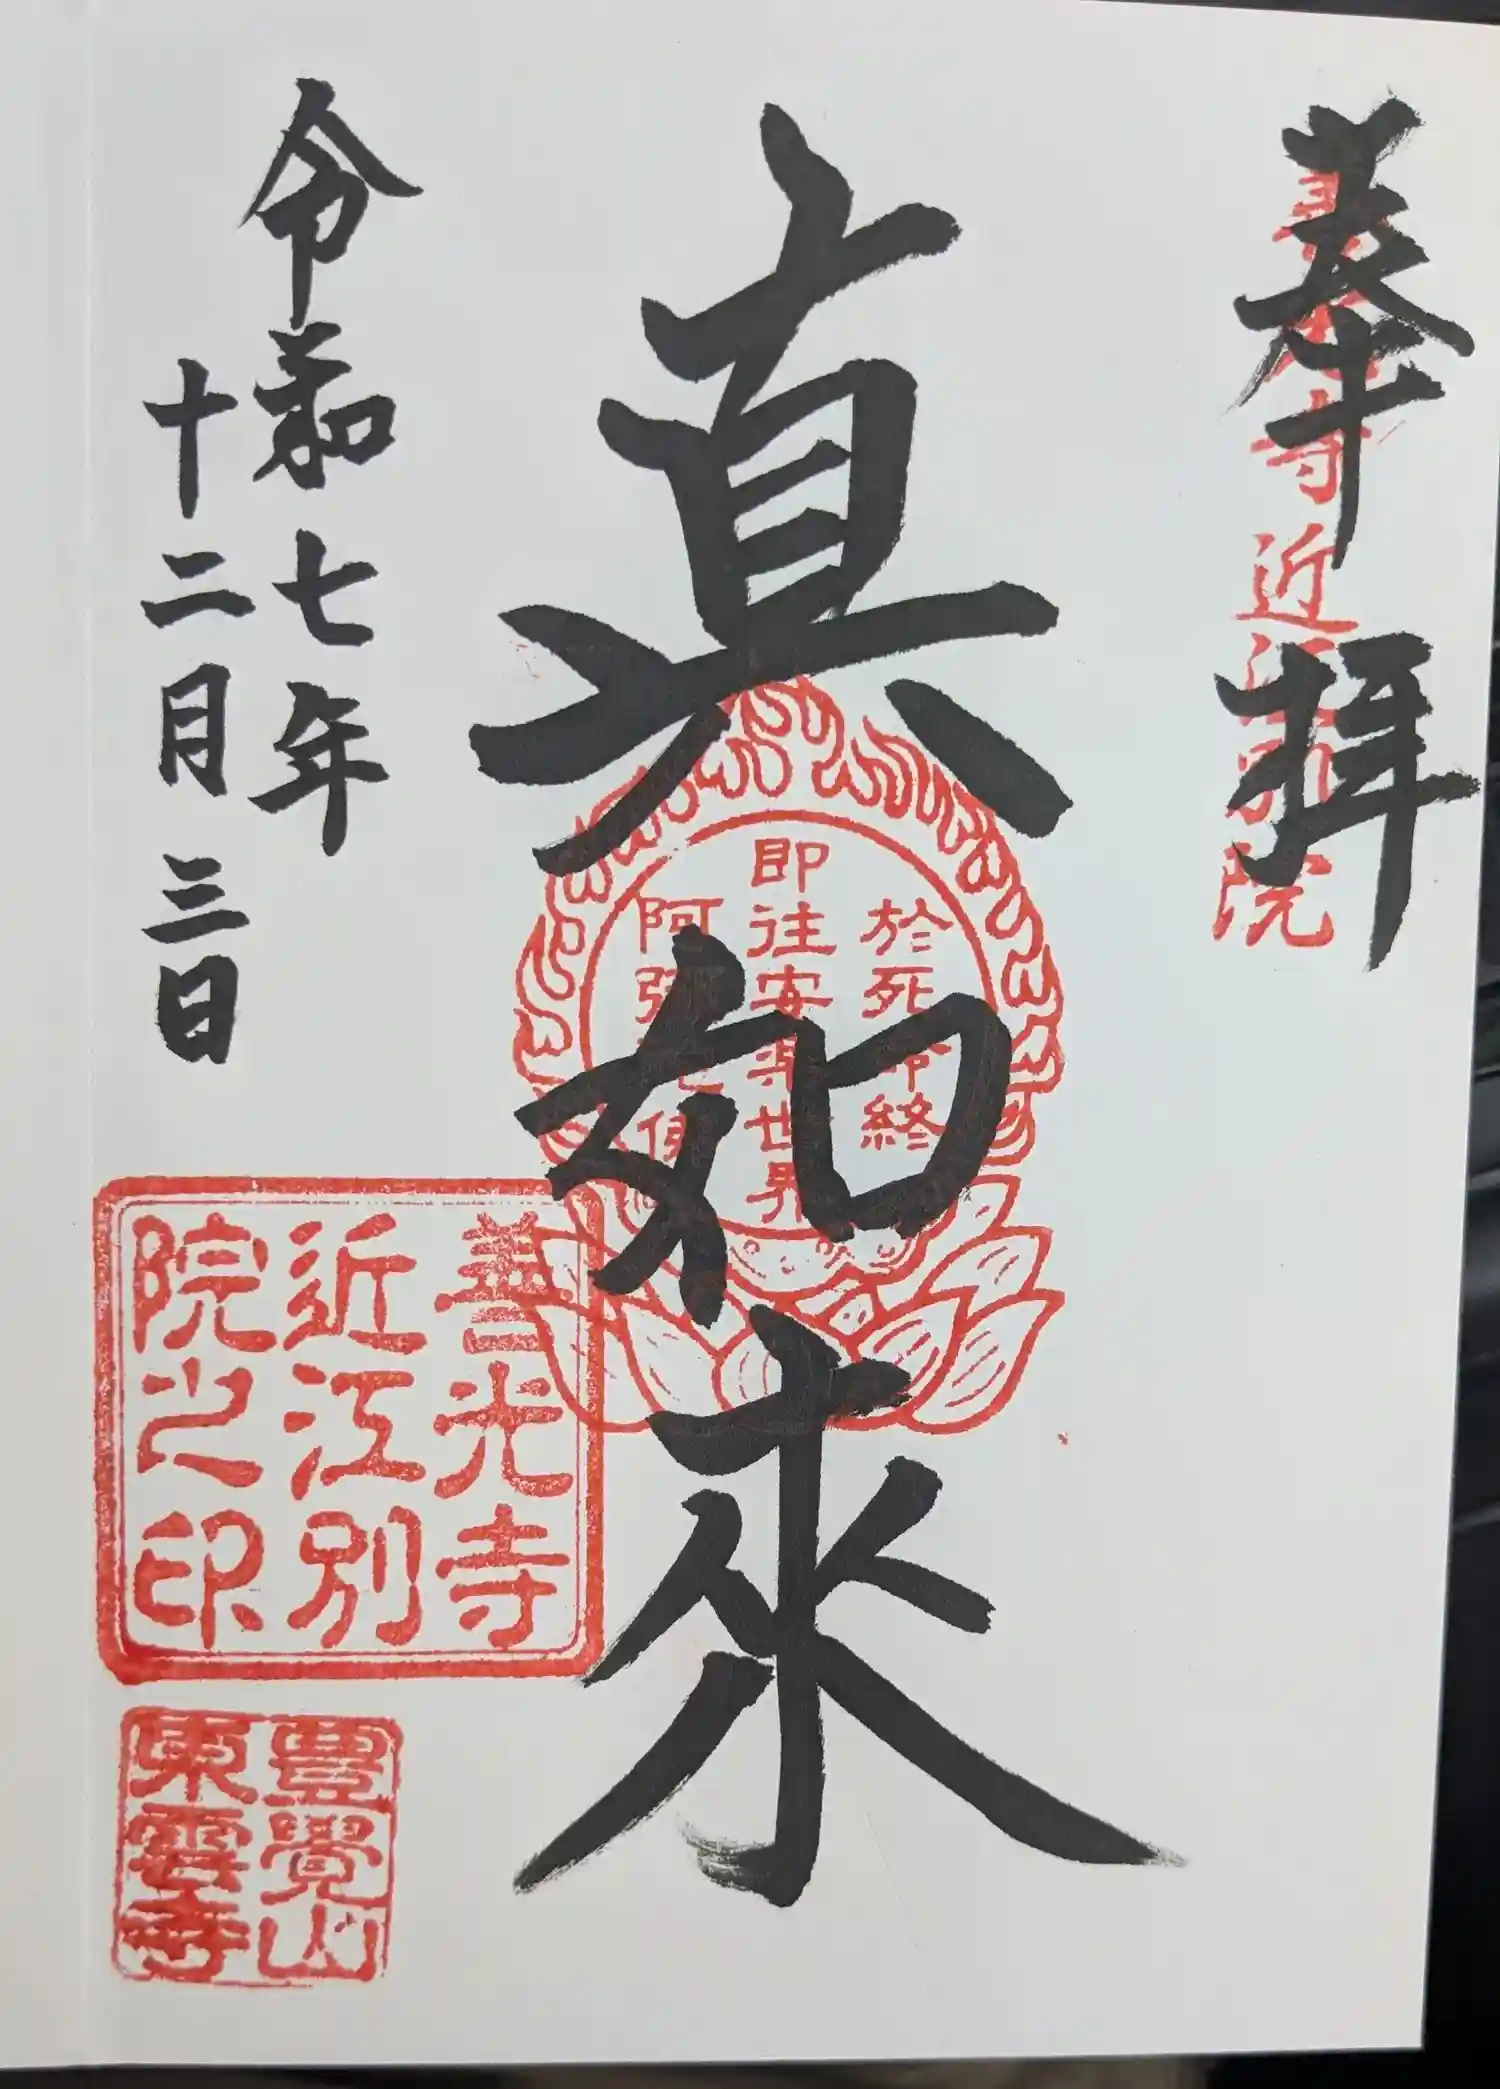 奉拝
善光寺近江別院
真如来
於死命終
即往安楽世界
阿弥陀佛
令和七年
十二月三日
善光寺
近江別
院之印
豊覺山
東雲寺